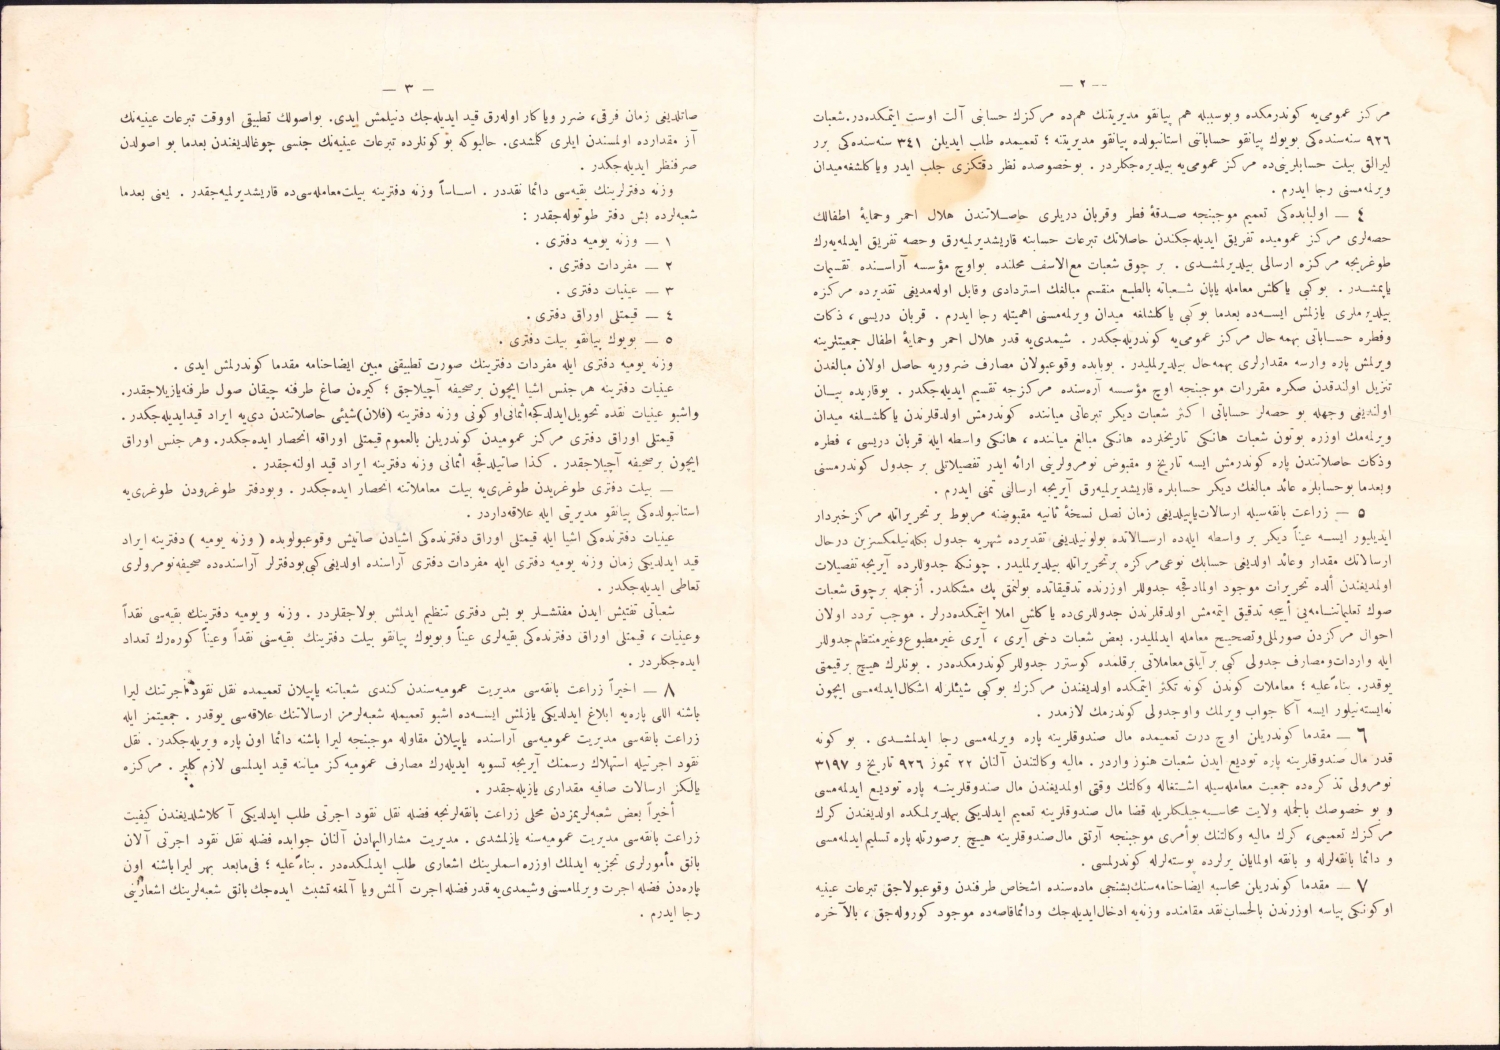 — ٢ —
مركز عمومى‌يه كوندرمكده وبوسببله هم پيانقو مديريتنك هم‌ده مركزك حسابنى آلت اوست ايتمكده‌در. شعبات
٩٢٦ سنه‌سنده‌كى بويوك پيانقو حساباتنى استانبولده پيانقو مديريتنه ؛ تعميمده طلب ايديلن ٣٤١ سنه‌سنده‌كى برر
ليرالق بيلت حسابلرينى‌ده مركز عمومى‌يه بيلديره‌جكلردر . بوخصوصده نظر دقتكزى جلب ايدر وياكلشغه‌ميدان
ويرلمه‌مسنى رجا ايدرم .
٤ — اولبابده‌كى تعميم موجبنجه صدقۀ فطر وقربان دريلرى حاصلاتندن هلال احمر وحمايۀ اطفالك
حصه‌لرى مركز عموميده تفريق ايديله‌جكندن حاصلاتك تبرعات حسابنه قاريشديرلميه‌رق وحصه تفريق ايدلمه‌يه‌رك
طوغريجه مركزه ارسالى بيلديرلمشدى . بر چوق شعبات مع‌الاسف محلنده بواوچ مؤسسه آراسنده تقسيمات
ياپمشدر . بوكبى ياكلش معامله ياپان شعباته بالطبع منقسم مبالغك استردادى وقابل اوله‌مديغى تقديرده مركزه
بيلديرملرى يازلمش ايسه‌ده بعدما بوكبى ياكلشلغه ميدان ويرلمه‌مسنى اهميتله رجا ايدرم . قربان دريسى ، ذكات
وفطره حساباتى بهمه‌حال مركز عمومى‌يه كوندريله‌جكدر . شيمدى‌يه قدر هلال احمر وحمايۀ اطفال جمعيتلرينه
ويرلمش پاره وارسه مقدارلرى بهمه‌حال بيلديرلمليدر . بوبابده وقوعبولان مصارف ضروريه حاصل اولان مبالغدن
تنزيل اولندقدن صكره مقررات موجبنجه اوچ مؤسسه آره‌سنده مركزجه تقسيم ايديله‌جكدر . يوقاريده بيان
اولنديغى وجهله بو حصه‌لر حساباتى اكثر شعبات ديكر تبرعاتى مياننده كوندرمش اولدقلرندن ياكلشلغه ميدان
ويرلمه‌مك اوزره بوتون شعبات هانكى تاريخلرده هانكى مبالغ مياننده ، هانكى واسطه ايله قربان دريسى ، فطره
وذكات حاصلاتندن پاره كوندرمش ايسه تاريخ و مقبوض نومرولرينى ارائه ايدر تفصيلاتلى بر جدول كوندرمسنى
وبعدما بوحسابلره عائد مبالغك ديكر حسابلره قاريشديرلميه‌رق آيريجه ارسالنى تمنى ايدرم .
٥ — زراعت بانقه‌سيله ارسالات ياپيلديغى زمان نصل نسخۀ ثانيه مقبوضنه مربوط بر تحريراتله مركز خبردار
ايديليور ايسه عيناً ديكر بر واسطه ايله‌ده ارسالاتده بولونيلديغى تقديرده شهريه جدول بكله‌نيلمكسزين درحال
ارسالاتك مقدار وعائد اولديغى حسابك نوعى مركزه برتحريراتله بيلديرلمليدر . چونكه جدوللرده آيريجه تفصيلات
اولمديغندن ألده تحريرات موجود اولمادقجه جدوللر اوزرنده تدقيقاتده بولنمق پك مشكلدر. ازجمله برچوق شعبات
صوك تعليماتنامه‌يى أييجه تدقيق ايتمه‌مش اولدقلرندن جدوللرى‌ده ياكلش املا ايتمكده‌درلر . موجب تردد اولان
احوال مركزدن صورلملى وتصحيح معامله ايدلمليدر. بعض شعبات دخى آيرى ، آيرى غيرمطبوع وغيرمنتظم جدوللر
ايله واردات ومصارف جدولى كبى بر آيلق معاملاتى برقلمده كوسترر جدوللر كوندرمكده‌در . بونلرك هيچ برقيمتى
يوقدر. بناءً عليه ؛ معاملات كوندن كونه تكثر ايتمكده اولديغندن مركزك بوكبى شيئلرله اشكال ايدلمه‌مسى ايچون
نه‌ايسته‌نيلور ايسه آكا جواب ويرلمك واوجدولى كوندرمك لازمدر .
٦ — مقدما كوندريلن اوچ درت تعميمده مال صندوقلرينه پاره ويرلمه‌مسى رجا ايدلمشدى . بو كونه
قدر مال صندوقلرينه پاره توديع ايدن شعبات هنوز واردر . ماليه وكالتندن آلنان ٢٢ تموز ٩٢٦ تاريخ و ٣١٩٧
نومرولى تذكره‌ده جمعيت معامله‌سيله اشتغاله وكالتك وقتى اولمديغندن مال صندوقلرينه پاره توديع ايدلمه‌مسى
و بو خصوصك بالجمله ولايت محاسبه‌جيلكلريله قضا مال صندوقلرينه تعميم ايدلديكى بيلديرلمكده اولديغندن كرك
مركزك تعميمى، كرك ماليه وكالتنك بوأمرى موجبنجه آرتق مال‌صندوقلرينه هيچ برصورتله پاره تسليم ايدلمه‌مسى
و دائما بانقه‌لرله و بانقه اولمايان يرلرده پوسته‌لرله كوندرلمسى .
٧ — مقدما كوندريلن محاسبه ايضاحنامه‌سنك بشنجى ماده‌سنده اشخاص طرفندن وقوعبولاجق تبرعات عينيه
اوكونكى پياسه اوزرندن بالحساب نقد مقامنده وزنه‌يه ادخال ايديله‌جك ودائما قاصه‌ده موجود كوروله‌جق ، بالآخره
— ٣ —
صاتلديغى زمان فرقى، ضرر وياكار اوله‌رق قيد ايديله‌جك دنيلمش ايدى. بواصولك تطبيقى اووقت تبرعات عينيه‌نك
آز مقدارده اولمسندن ايلرى كلمشدى. حالبوكه بو كونلرده تبرعات عينيه‌نك جنسى چوغالديغندن بعدما بو اصولدن
صرفنظر ايديله‌جكدر .
وزنه دفترلرينك بقيه‌سى دائما نقددر . اساساً وزنه دفترينه بيلت معامله‌سى‌ده قاريشديرلميه‌جقدر . يعنى بعدما
شعبه‌لرده بش دفتر طوتوله‌جقدر :
١ — وزنه يوميه دفترى .
٢ — مفردات دفترى .
٣ — عينيات دفترى .
٤ — قيمتلى اوراق دفترى .
٥ — بويوك پيانقو بيلت دفترى .
وزنه يوميه دفترى ايله مفردات دفترينك صورت تطبيقنى مبين ايضاحنامه مقدما كوندرلمش ايدى .
عينيات دفترينه هر جنس اشيا ايچون برصحيفه آچيلاجق ؛ كيره‌ن صاغ طرفنه چيقان صول طرفنه يازيلاجقدر.
واشبو عينيات نقده تحويل ايدلدكجه اثمانى اوكونى وزنه دفترينه (فلان) شيئى حاصلاتندن دى‌يه ايراد قيد ايديله‌جكدر .
قيمتلى اوراق دفترى مركز عموميدن كوندريلن بالعموم قيمتلى اوراقه انحصار ايده‌جكدر. وهر جنس اوراق
ايچون برصحيفه آچيلاجقدر . كذا صاتيلدقجه اثمانى وزنه دفترينه ايراد قيد اولنه‌جقدر .
— بيلت دفترى طوغريدن طوغرى‌يه بيلت معاملاتنه انحصار ايده‌جكدر . وبودفتر طوغرودن طوغرى‌يه
استانبولده‌كى پيانقو مديريتى ايله علاقه‌داردر .
عينيات دفترنده‌كى اشيا ايله قيمتلى اوراق دفترنده‌كى اشيادن صاتيش وقوعبولوبده ( وزنه يوميه ) دفترينه ايراد
قيد ايدلديكى زمان وزنه يوميه دفترى ايله مفردات دفترى آراسنده اولديغى كبى بودفترلر آراسنده‌ده صحيفه نومرولرى
تعاطى ايديله‌جكدر .
شعباتى تفتيش ايدن مفتشلر بو بش دفترى تنظيم ايدلمش بولاجقلردر . وزنه و يوميه دفترينك بقيه‌سى نقداً
وعينيات ، قيمتلى اوراق دفترنده‌كى بقيه‌لرى عيناً وبويوك پيانقو بيلت دفترينك بقيه‌سنى نقداً وعيناً كوره‌رك تعداد
ايده‌جكلردر .
٨ — اخيراً زراعت بانقه‌سى مديريت عموميه‌سندن كندى شعباتنه ياپيلان تعميمده نقل نقود اجرتنك ليرا
باشنه اللى پاره‌يه ابلاغ ايدلديكى يازلمش ايسه‌ده اشبو تعميمله شعبه‌لرمز ارسالاتنك علاقه‌سى يوقدر . جمعيتمز ايله
زراعت بانقه‌سى مديريت عموميه‌سى آراسنده ياپيلان مقاوله موجبنجه ليرا باشنه دائما اون پاره ويريله‌جكدر . نقل
نقود اجرتيله استهلاك رسمنك آيريجه تسويه ايديله‌رك مصارف عموميه‌كز مياننه قيد ايدلمسى لازم كلير . مركزه
يالكز ارسالات صافيه مقدارى يازيله‌جقدر .
أخيراً بعض شعبه‌لريمزدن محلى زراعت بانقه‌لرنجه فضله نقل نقود اجرتى طلب ايدلديكى آكلاشلديغندن كيفيت
زراعت بانقه‌سى مديريت عموميه‌سنه يازلمشدى . مديريت مشاراليهادن آلنان جوابده فضله نقل نقود اجرتى آلان
بانق مأمورلرى تجزيه ايدلمك اوزره اسملرينك اشعارى طلب ايدلمكده‌در . بناءً عليه ؛ فى‌مابعد بهر ليرا باشنه اون
پاره‌دن فضله اجرت ويرلمامسنى وشيمدى‌يه قدر فضله اجرت آلمش ويا آلمغه تشبث ايده‌جك بانق شعبه‌لرينك اشعارينى
رجا ايدرم .